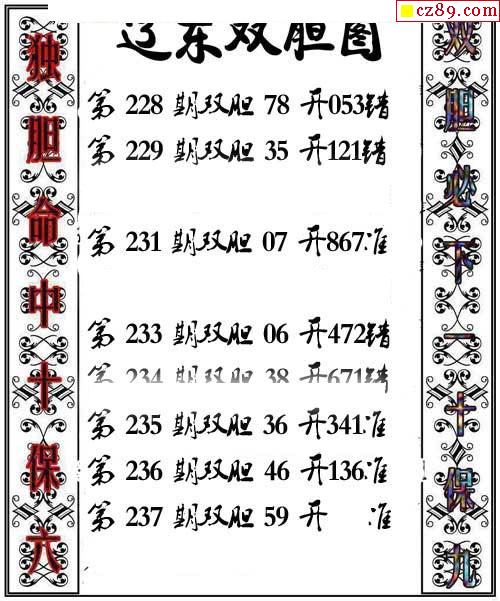 cz89.com
辽东双胆图
独胆命中十保六
第 228 期双胆 78 开053错
第 229 期双胆 35 开121错
第 231 期双胆 07 开867准
第 233 期双胆 06 开472错
第 234 期双胆 38 开671错
第 235 期双胆 36 开341准
第 236 期双胆 46 开136准
第 237 期双胆 59 开 准
双胆必下一十保九